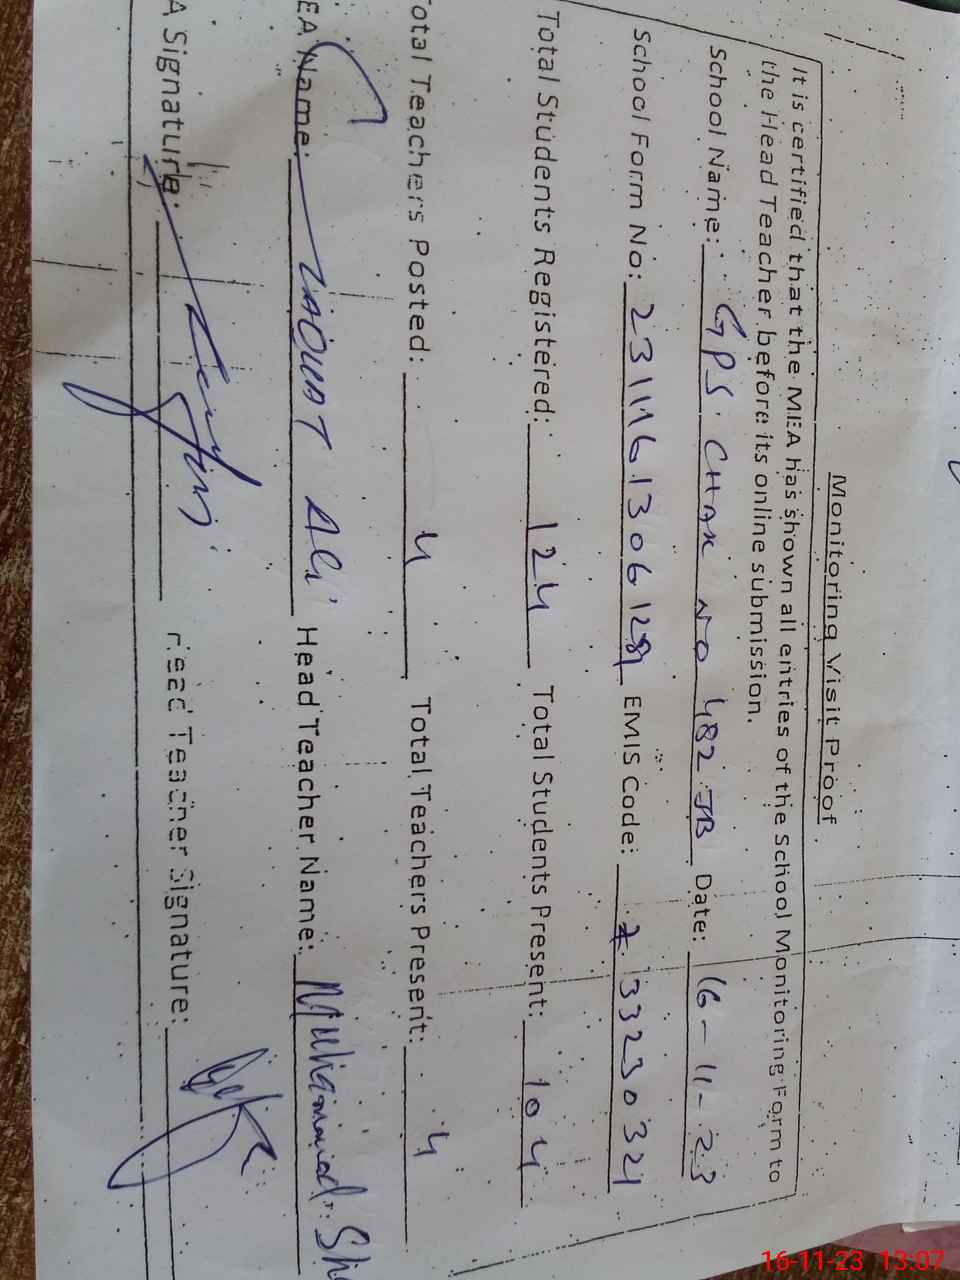 Monitoring Visit Proof
It is certified that the MEA has shown all entries of the School Monitoring Form to
the Head Teacher before its online submission.
School Name: GPS CHAK NO 482 JB Date: 16-11-23
School Form No: EMIS Code: 33230321
Total Students Registered: 124 Total Students Present: 104
Total Teachers Posted: 4 Total Teachers Present: 4
EA Name: LIAQUAT Ali Head Teacher Name: Muhammad
A Signature: Head Teacher Signature:
16-11-23 13:07